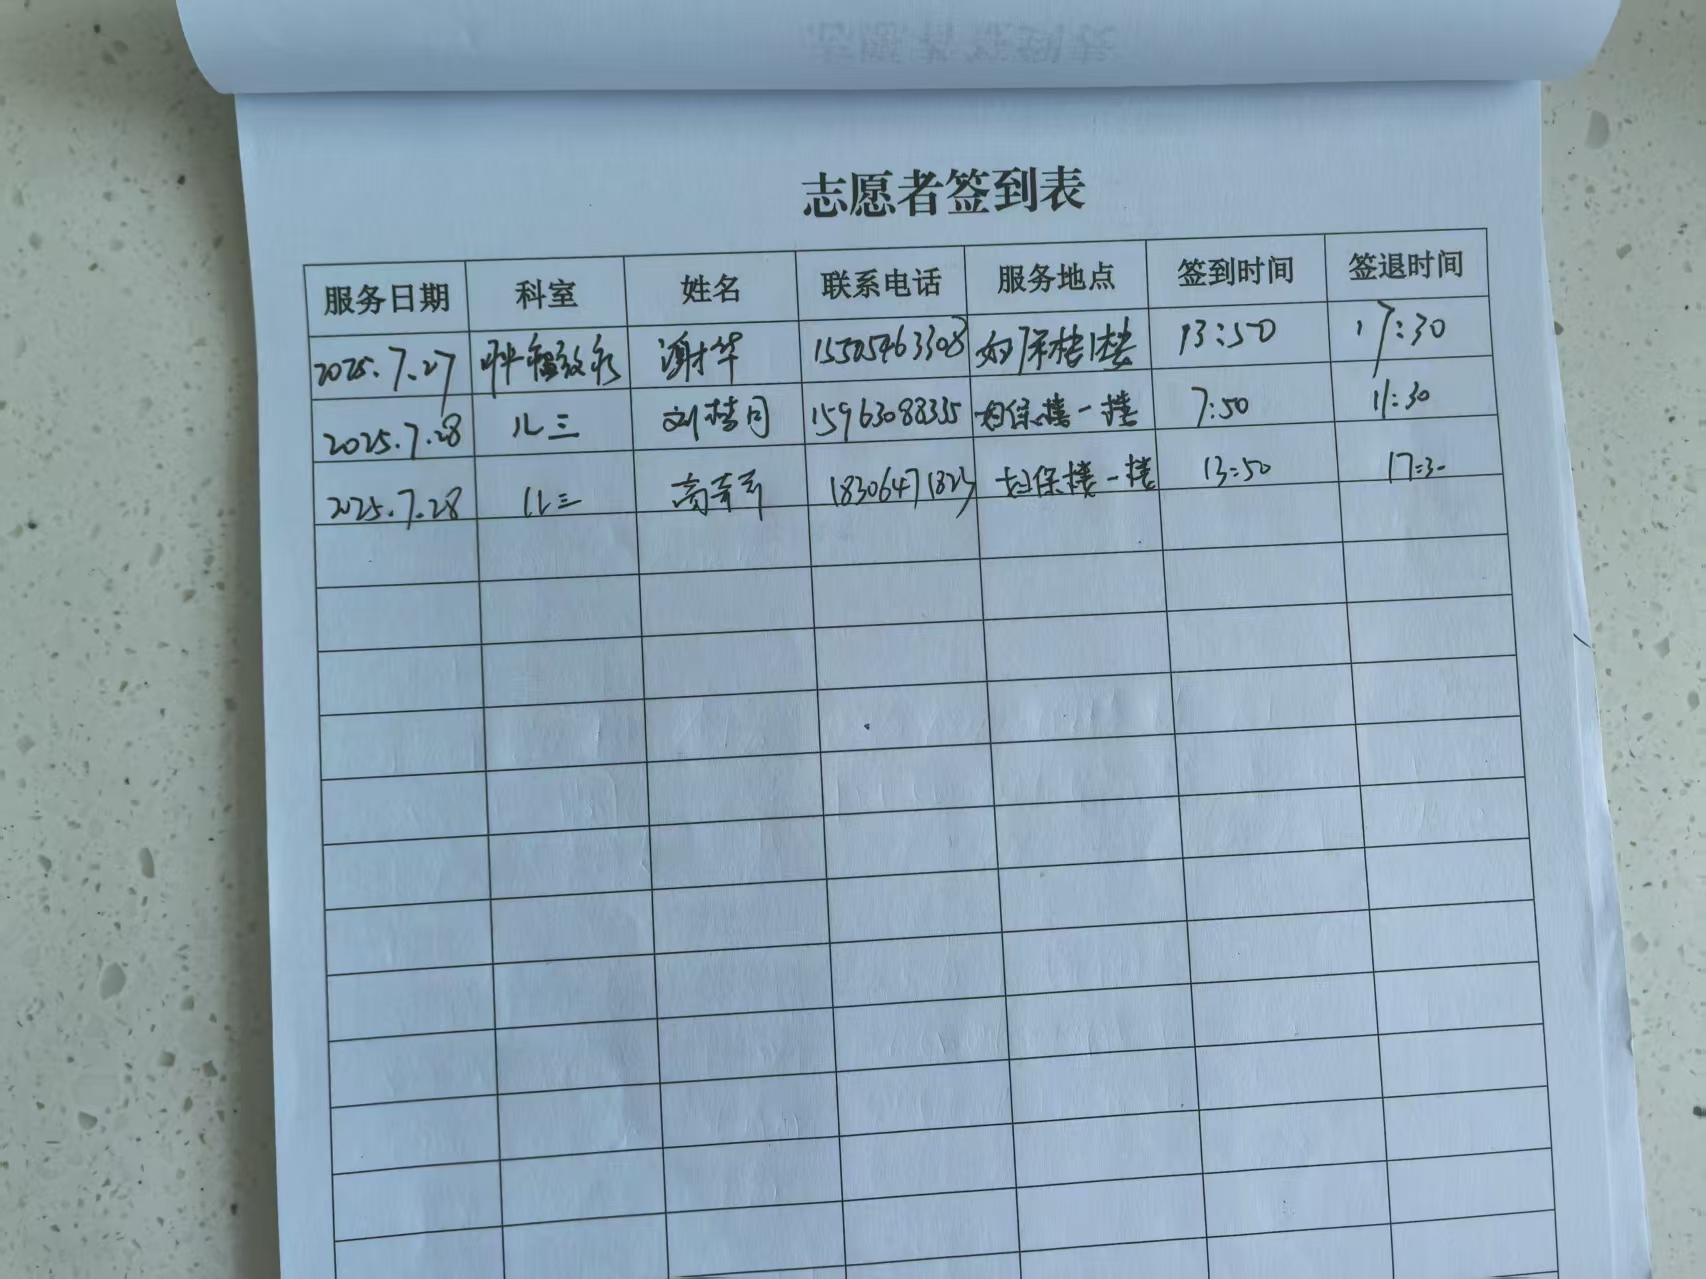 志愿者签到表
服务日期 科室 姓名 联系电话 服务地点 签到时间 签退时间
2025.7.27 谢华 15505463308 妇保楼1楼 13:50 17:30
2025.7.28 儿三 刘 15963088335 妇保楼一楼 7:50 11:30
2025.7.28 儿三 高 18306471823 妇保楼一楼 13:50 17:30